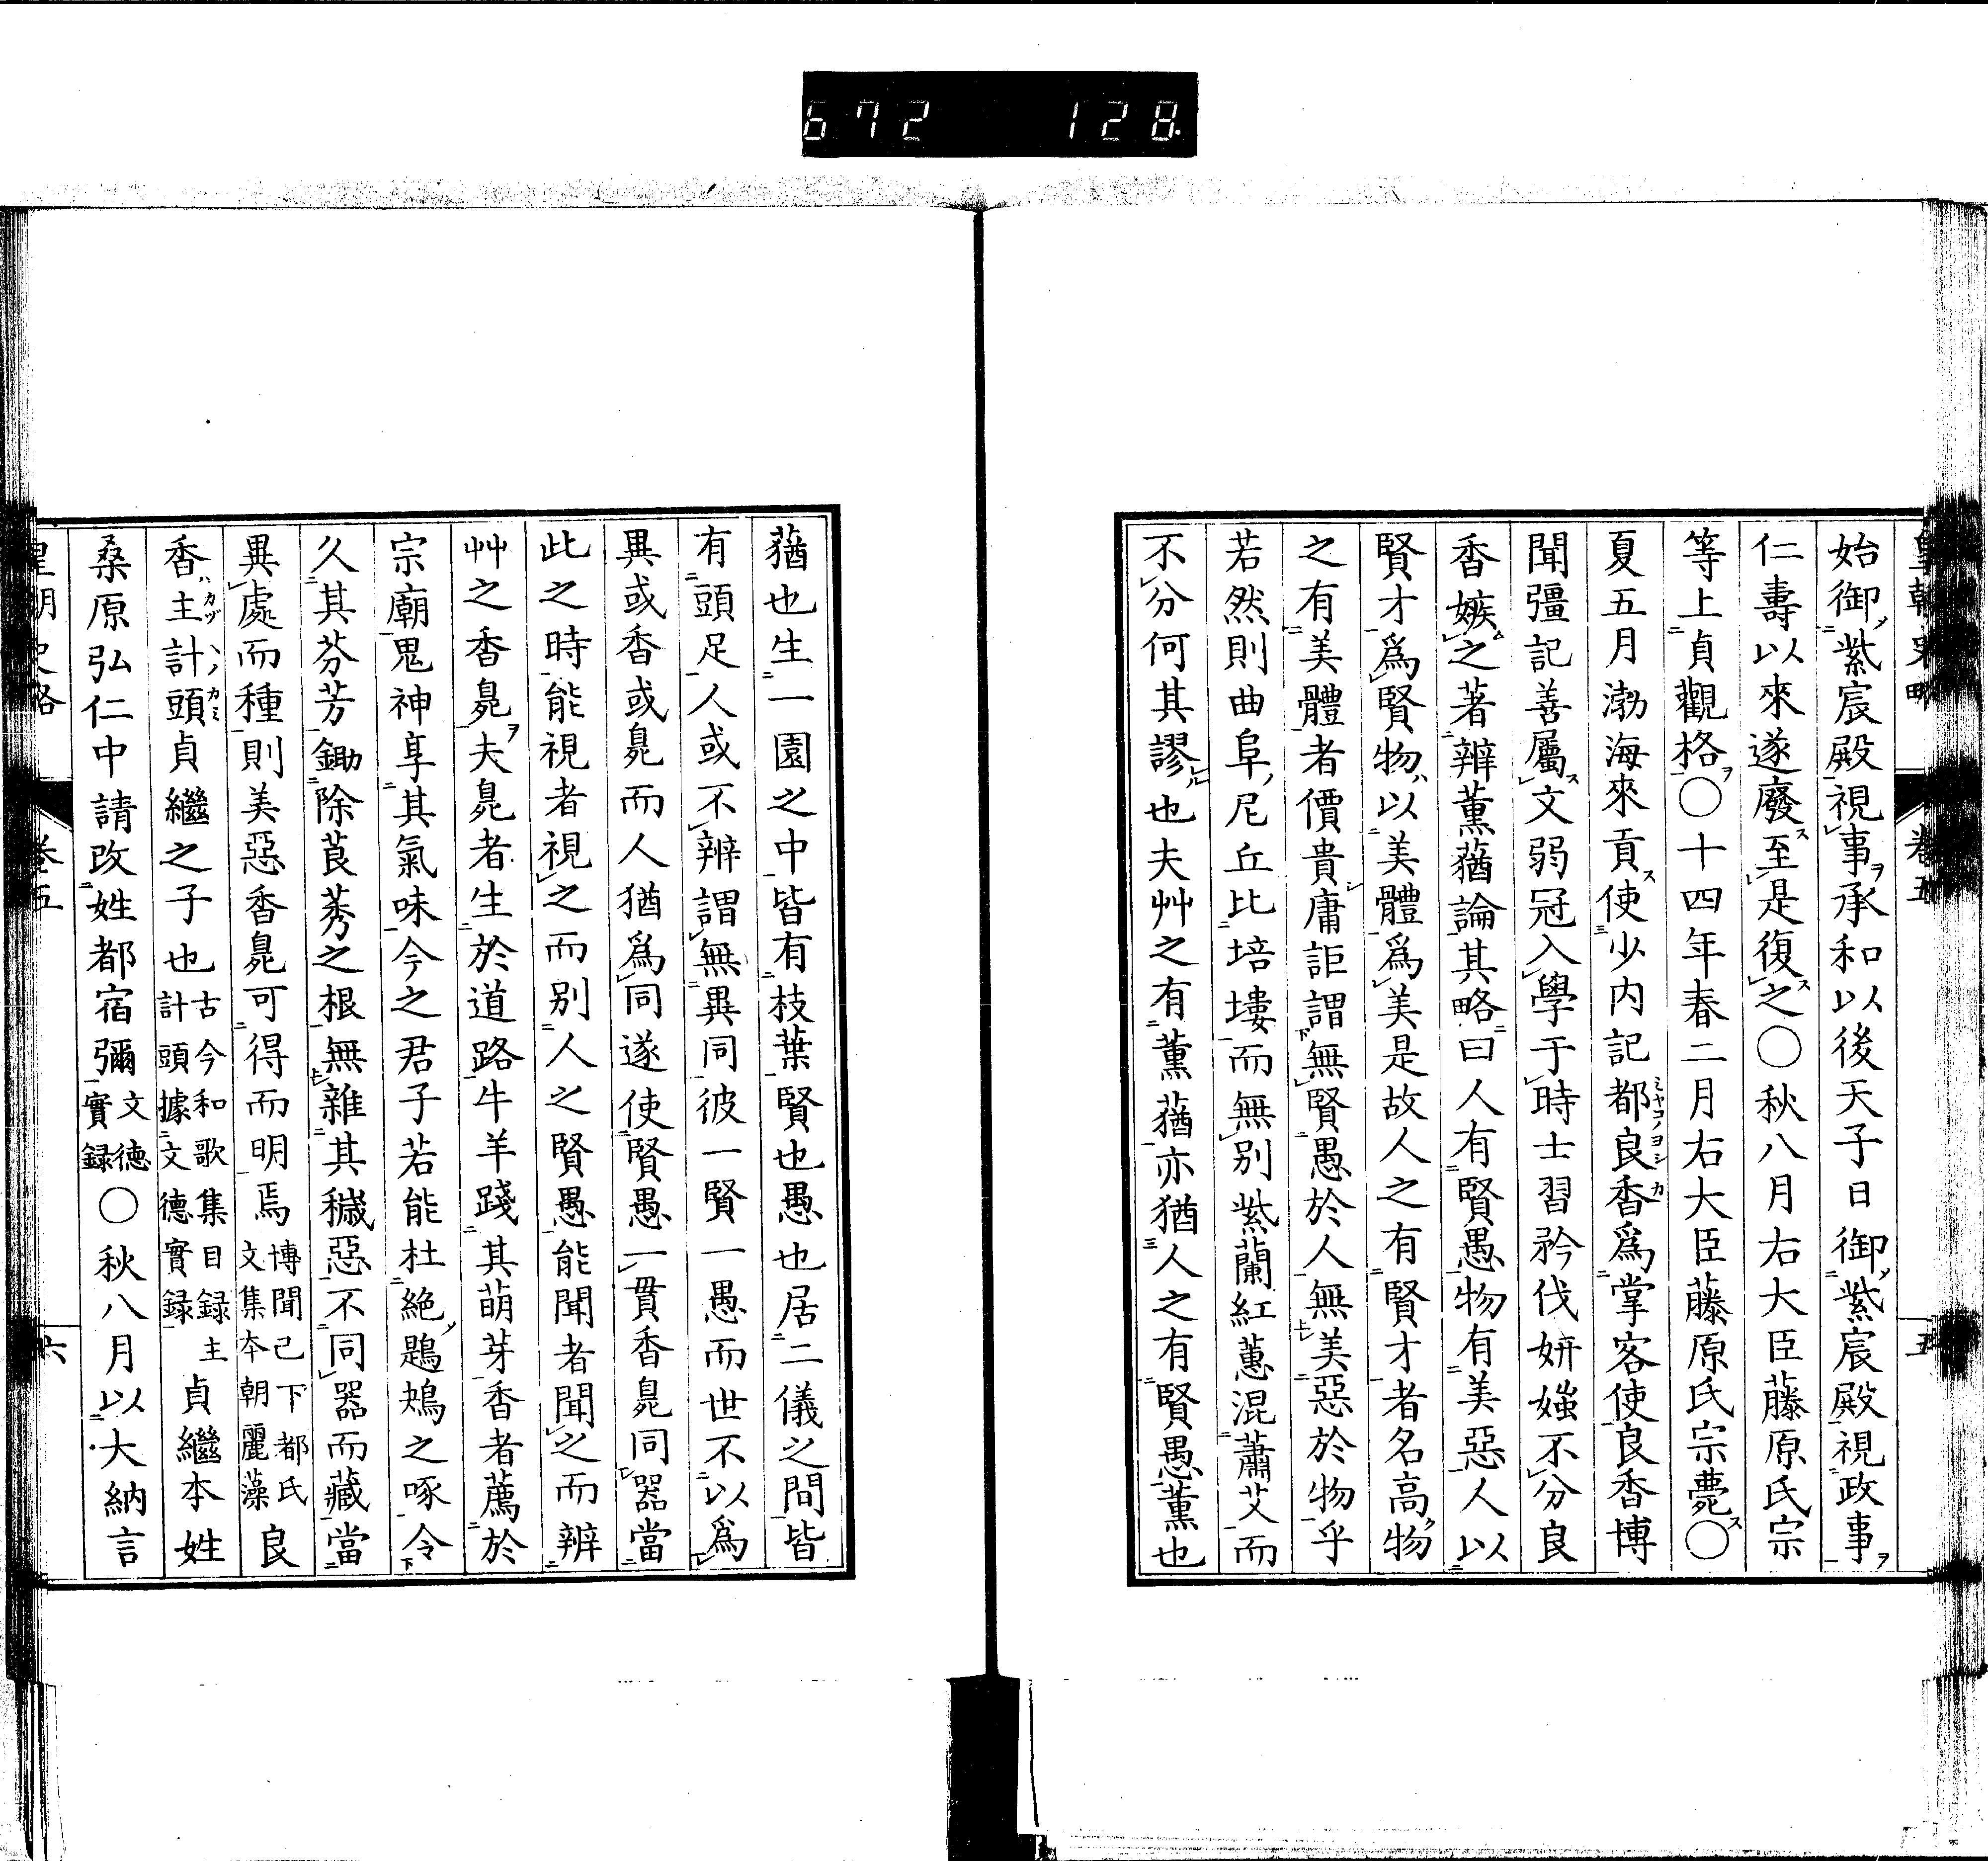 672 128
皇朝史略 卷五 五
始御紫宸殿視事承和以後天子日御紫宸殿視政事
仁壽以來遂廢至是復之〇秋八月右大臣藤原氏宗
等上貞觀格〇十四年春二月右大臣藤原氏宗薨〇
夏五月渤海來貢使少内記都良香爲掌客使良香博
聞彊記善屬文弱冠入學于時士習矜伐妍媸不分良
香嫉之著辨薰蕕論其略曰人有賢愚物有美惡人以
賢才爲賢物以美體爲美是故人之有賢才者名高物
之有美體者價貴庸詎謂無賢愚於人無美惡於物乎
若然則曲阜尼丘比培塿而無別紫蘭紅蕙混蕭艾而
不分何其謬也夫艸之有薰蕕亦猶人之有賢愚薰也
蕕也生一園之中皆有枝葉賢也愚也居二儀之間皆
有頭足人或不辨謂無異同彼一賢一愚而世不以爲
異或香或臰而人猶爲同遂使賢愚一貫香臰同器當
此之時能視者視之而別人之賢愚能聞者聞之而辨
艸之香臰夫臰者生於道路牛羊踐其萌芽香者薦於
宗廟鬼神享其氣味今之君子若能杜絕鶗鴂之啄令
久其芬芳鋤除莨莠之根無雜其穢惡不同器而藏當
異處而種則美惡香臰可得而明焉博聞已下都氏文集本朝麗藻良
香主計頭貞繼之子也古今和歌集目録主計頭據文德實録貞繼本姓
桑原弘仁中請改姓都宿彌文德實録〇秋八月以大納言
皇朝史略 卷五 六